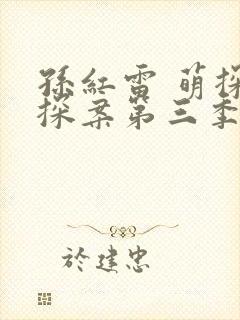 孫紅雷 萌探
探案第三季
於建忠